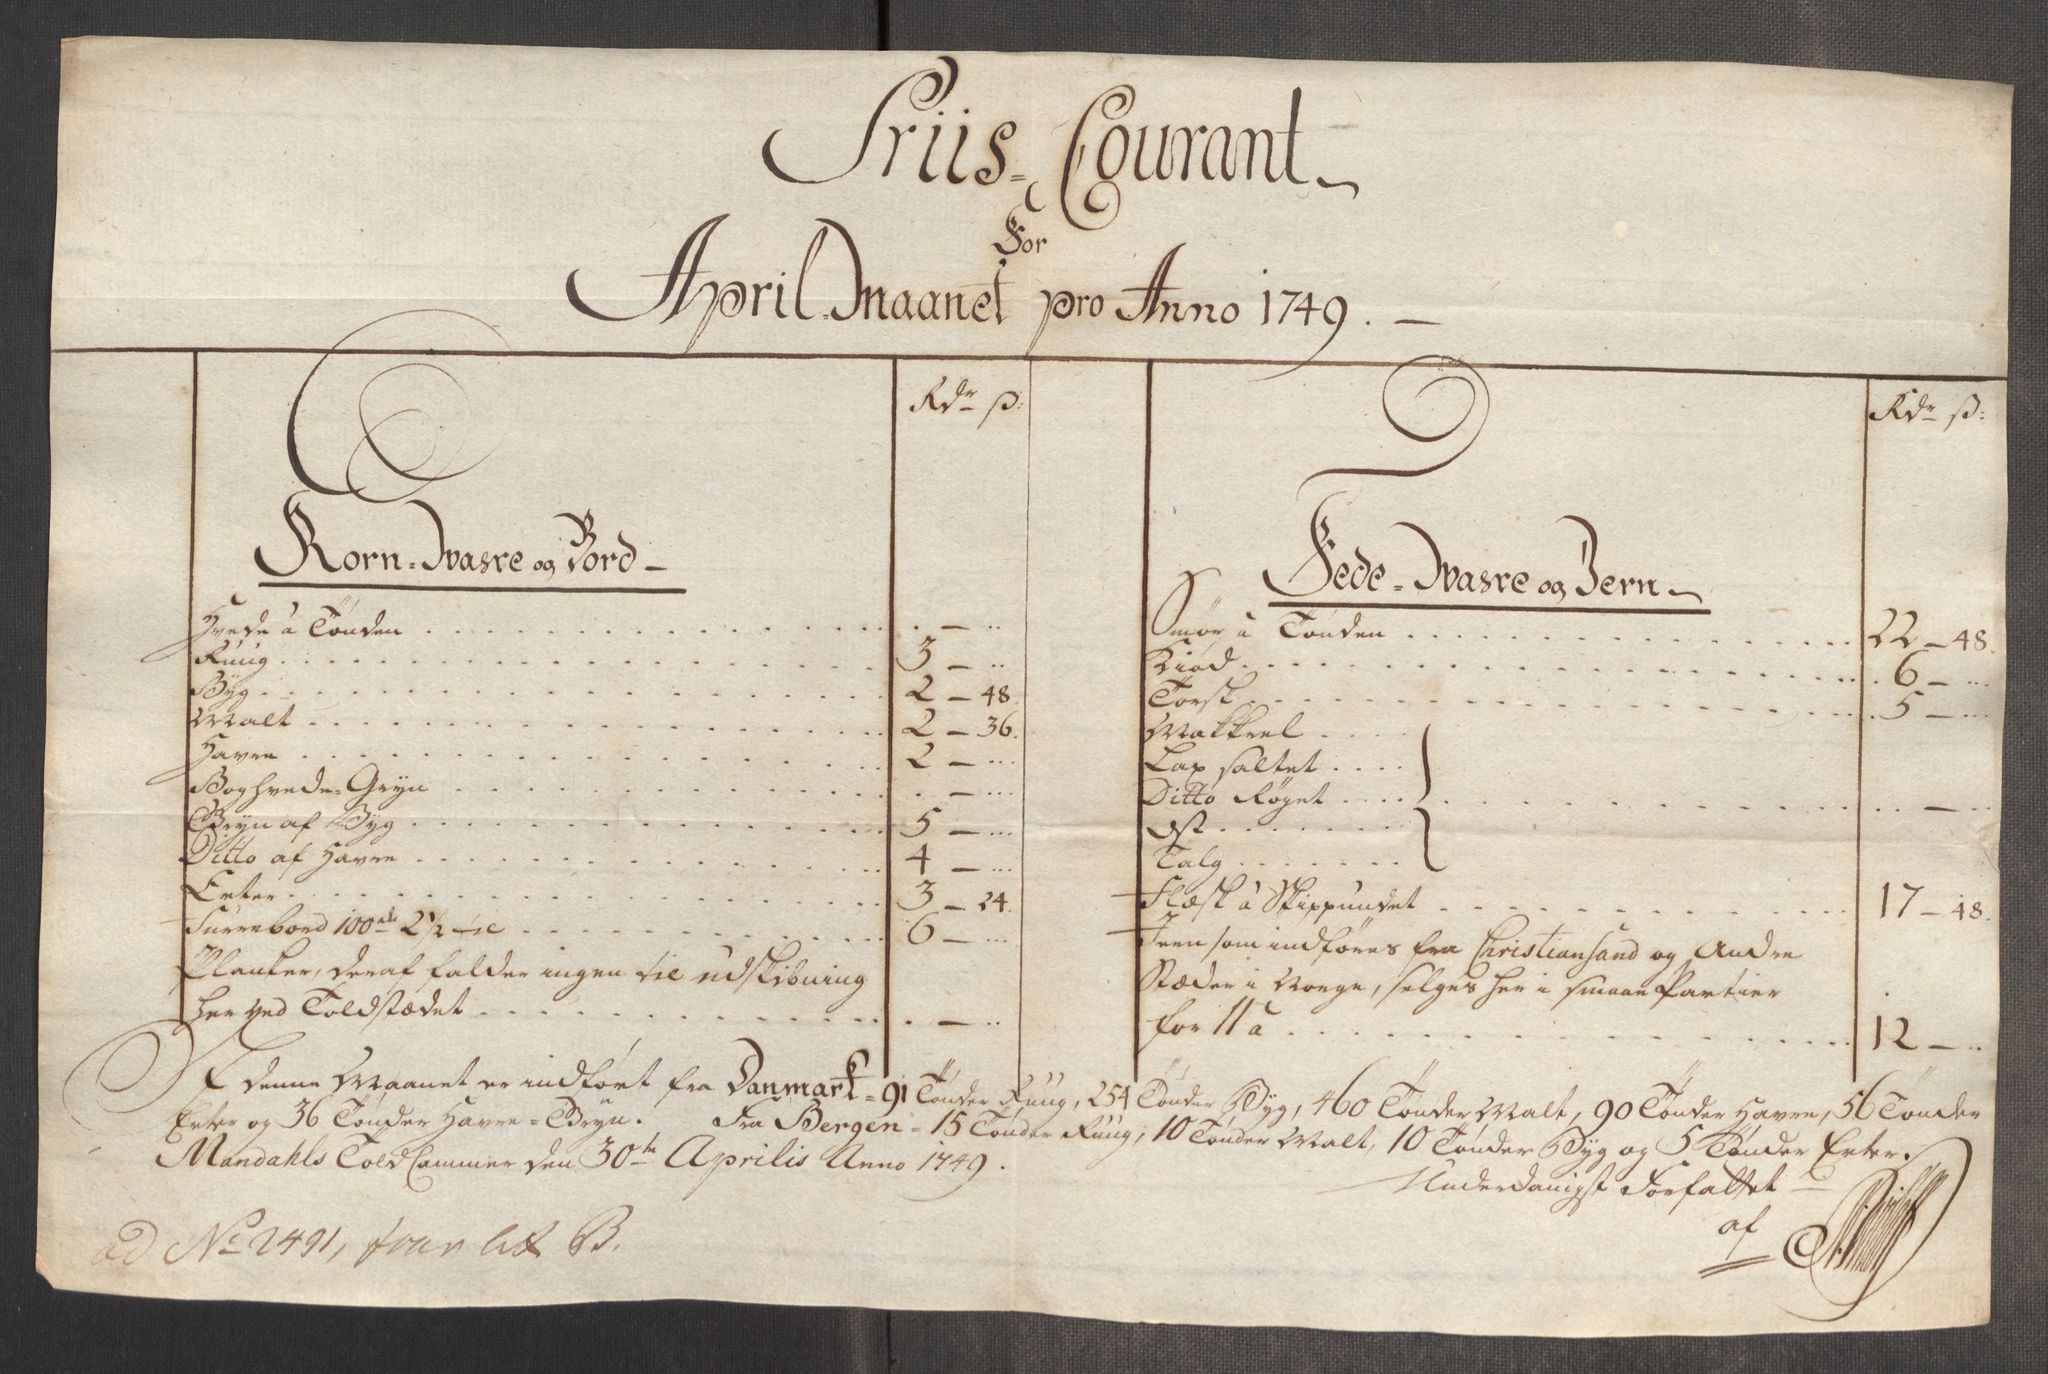 Priis-Courant
For
April Maanet pro Anno 1749.
Rdr ß:
Korn-Waare og Bord
Hvede à Tönden . . . — ..
Ruug . . . 3 — ..
Byg . . . 2 — 48.
Malt . . . 2 — 36.
Havre . . . 2 — ...
Boghvede-Gryn . . . — ...
Gryn af Byg . . . 5 — ...
Ditto af Havre . . . 4 — ...
Erter . . . 3 — 24.
Furrebord 100de 2½ . . . 6 — ...
Planker, deraf falder ingen til udskibning
her ved Toldstædet . . . — ..
Rdr ß:
Fede-Waare og Jern
Smör à Tönden . . . 22 — 48.
Kiöd . . . 6 — ...
Torsk . . . 5 — ...
Makkrel . . . .
Lax saltet . . . .
Ditto Röget . . . . — ..
Ost . . . .
Talg . . . .
Flæsk à Skippundet . . . 17 — 48.
Jern som indföres fra Christiansand og Andre
Stæder i Norge, selges her i smaae Partier
for 11 à . . . 12 — ..
I denne Maanet er indfört fra Danmark = 91 Tönder Ruug, 254 Tönder Byg, 460 Tönder Malt, 90 Tönder Havre, 56 Tönder
Erter og 36 Tönder Havre-Gryn. Fra Bergen = 15 Tönder Ruug, 10 Tönder Malt, 10 Tönder Byg og 5 Tönder Erter.
Mandahls Told Cammer den 30te Aprilis Anno 1749.
Underdanigst Forfattet
af
ad No 2491, lit B.